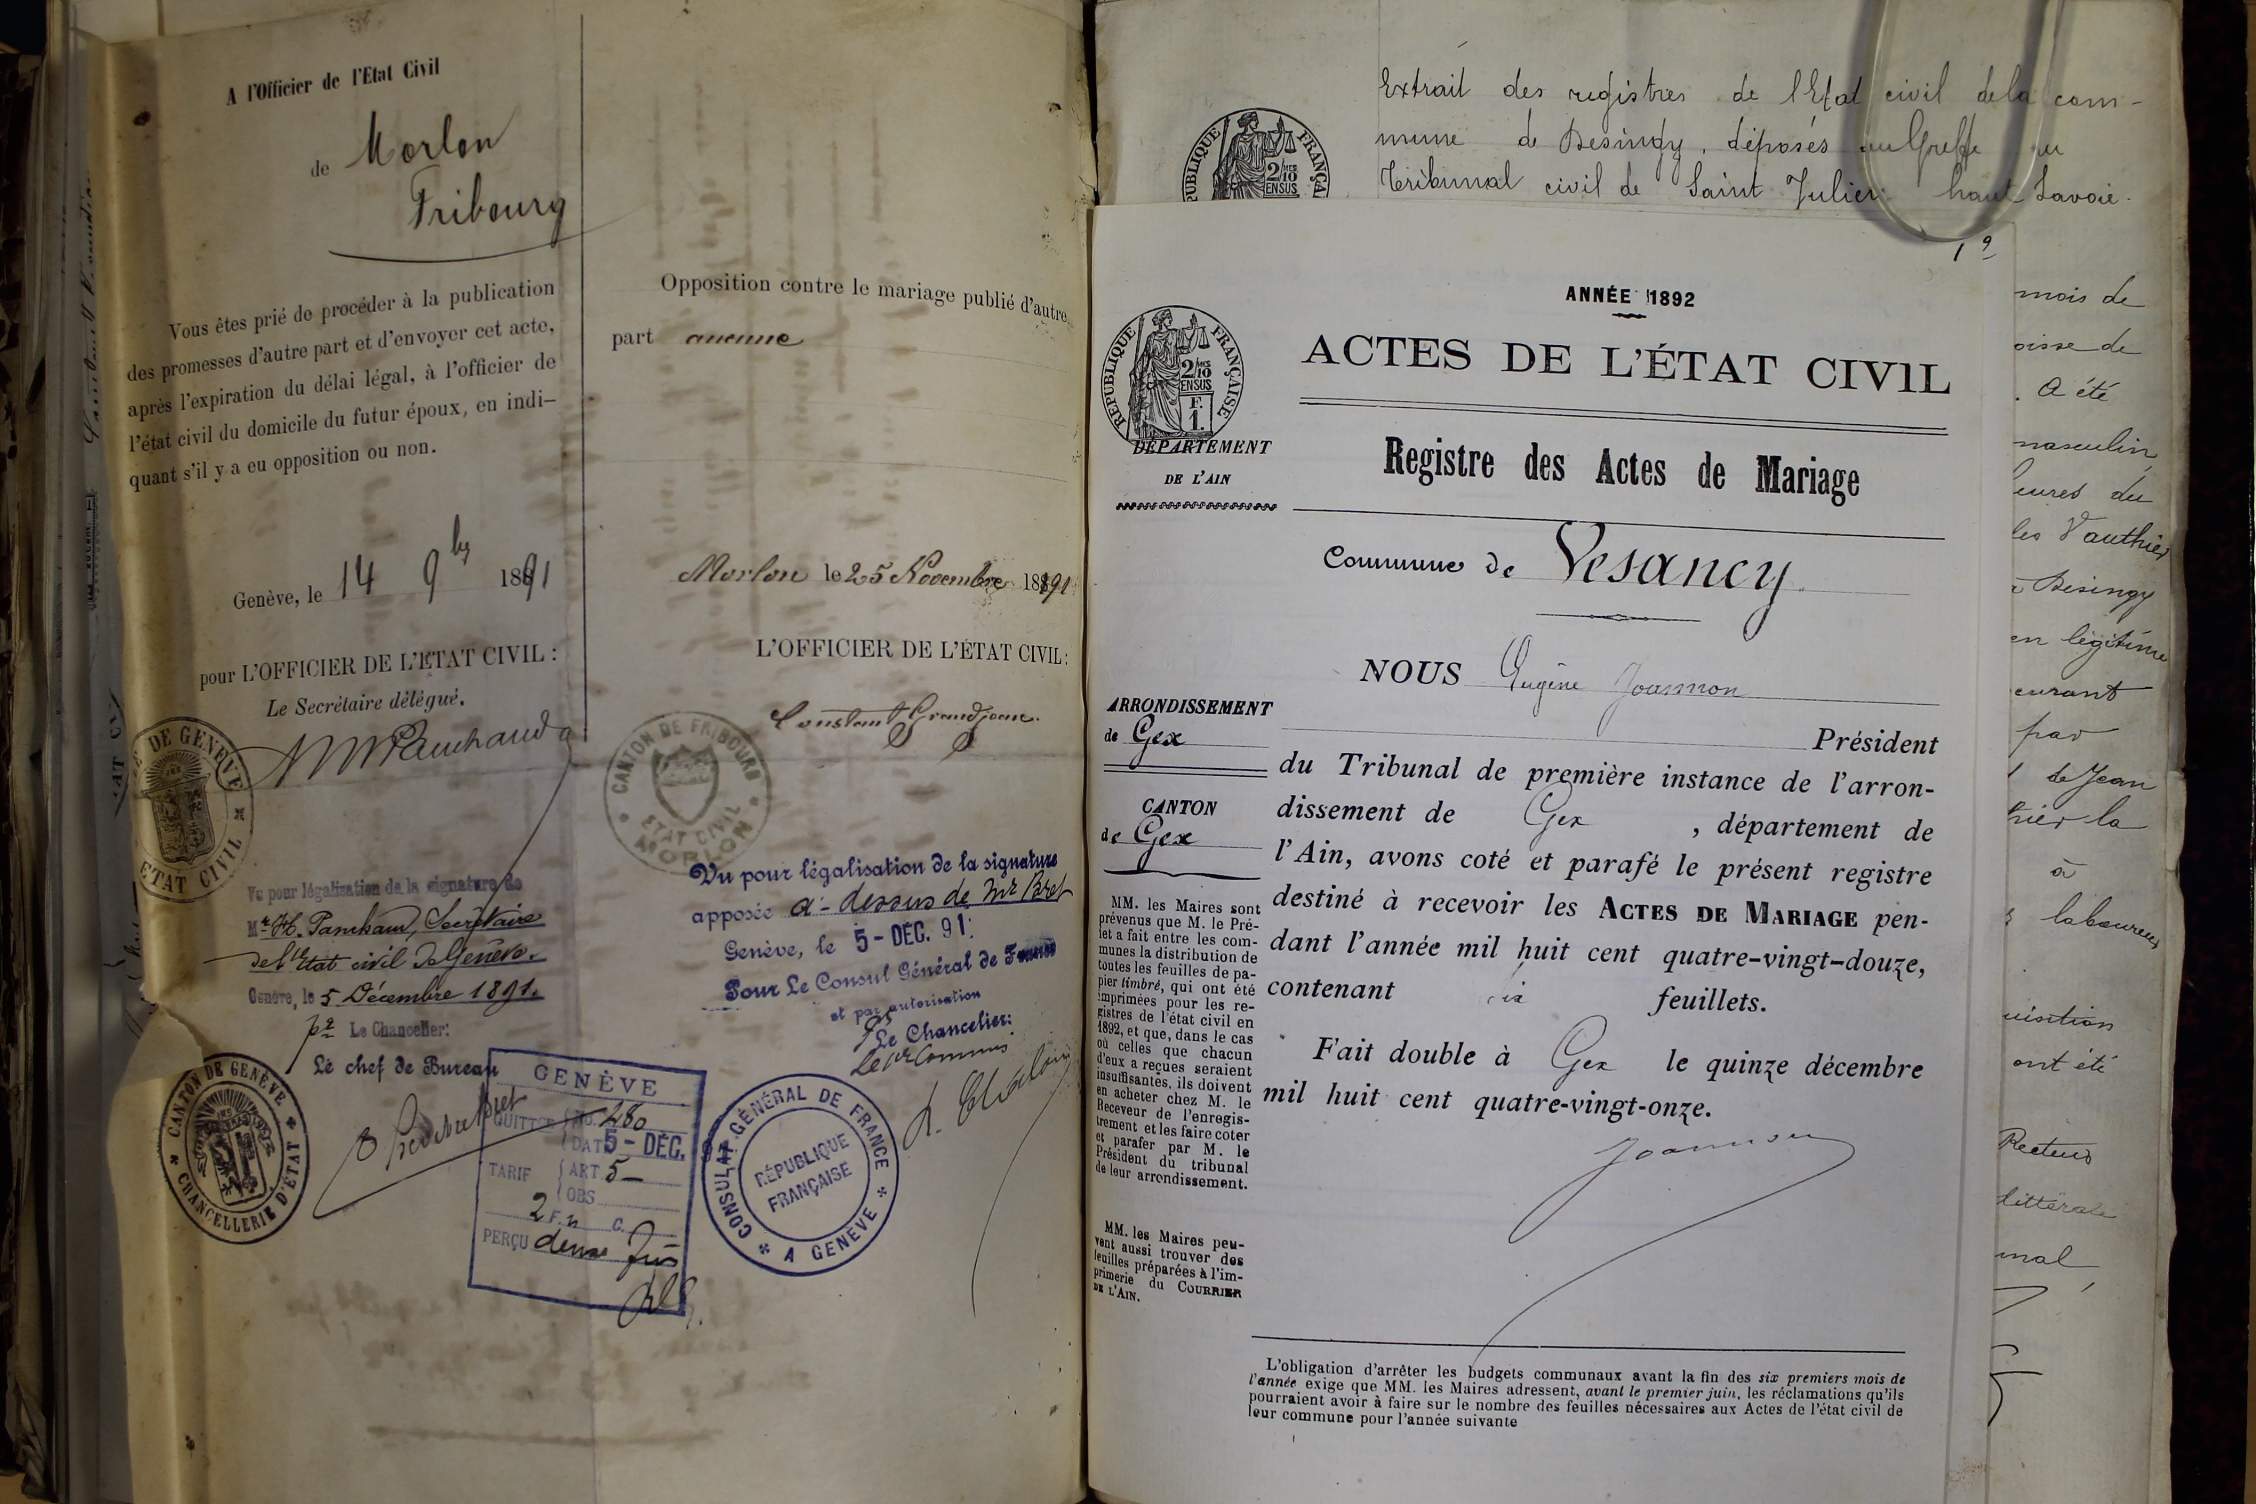 A l'Officier de l'Etat Civil
de Morlon
Fribourg
Vous êtes prié de procéder à la publication
des promesses d'autre part et d'envoyer cet acte,
après l'expiration du délai légal, à l'officier de
l'état civil du domicile du futur époux, en indi-
quant s'il y a eu opposition ou non.
Genève, le 14 9bre 1891
pour L'OFFICIER DE L'ETAT CIVIL :
Le Secrétaire délégué.
DE GENÈVE
ETAT CIVIL
Vu pour légalisation de la signature de
Mr. H. Panchaud, Secrétaire
de l'Etat civil de Genève.
Genève, le 5 Décembre 1891.
pr Le Chancelier:
Le chef de Bureau
CANTON DE GENÈVE
CHANCELLERIE D'ETAT
GENÈVE
QUITTCE No. 280
DATE 5 - DÉC.
TARIF ART 5 -
OBS
2 F. C.
PERÇU deux frs
Opposition contre le mariage publié d'autre
part aucune
Morlon le 25 Novembre 1891
L'OFFICIER DE L'ÉTAT CIVIL:
Constant Grandjean.
CANTON DE FRIBOURG
ETAT CIVIL
MORLON
Vu pour légalisation de la signature
apposée ci-dessus de Mr Bret
Genève, le 5 - DÉC. 91:
Pour Le Consul Général de France
et par autorisation
Le Chancelier:
Le 1er Commis
CONSULAT GÉNÉRAL DE FRANCE
A GENÈVE
RÉPUBLIQUE
FRANÇAISE
Extrait des registres de l'Etat civil de la com-
mune de Desingy, déposés au Greffe du
Tribunal civil de Saint Julien haute Savoie.
RÉPUBLIQUE FRANÇAISE
2/10 MES
EN SUS
1 9
ANNÉE 1892
ACTES DE L'ÉTAT CIVIL
RÉPUBLIQUE FRANÇAISE
2/10 MES
EN SUS
F.
1.
DÉPARTEMENT
DE L'AIN
Registre des Actes de Mariage
Commune de Vesancy
NOUS Eugène Joannon
ARRONDISSEMENT
de Gex
CANTON
de Gex
Président
du Tribunal de première instance de l'arron-
dissement de Gex , département de
l'Ain, avons coté et parafé le présent registre
destiné à recevoir les ACTES DE MARIAGE pen-
dant l'année mil huit cent quatre-vingt-douze,
contenant six feuillets.
Fait double à Gex le quinze décembre
mil huit cent quatre-vingt-onze.
Joannon
MM. les Maires sont
prévenus que M. le Pré-
fet a fait entre les com-
munes la distribution de
toutes les feuilles de pa-
pier timbré, qui ont été
imprimées pour les re-
gistres de l'état civil en
1892, et que, dans le cas
où celles que chacun
d'eux a reçues seraient
insuffisantes, ils doivent
en acheter chez M. le
Receveur de l'enregis-
trement et les faire coter
et parafer par M. le
Président du tribunal
de leur arrondissement.
MM. les Maires peu-
vent aussi trouver des
feuilles préparées à l'im-
primerie du COURRIER
DE L'AIN.
L'obligation d'arrêter les budgets communaux avant la fin des six premiers mois de
l'année exige que MM. les Maires adressent, avant le premier juin, les réclamations qu'ils
pourraient avoir à faire sur le nombre des feuilles nécessaires aux Actes de l'état civil de
leur commune pour l'année suivante
mois de
oisse de
. A été
masculin
heures du
les Vauthier
à Desingy
en légitime
par
de Jean
à
laboureur
ont été
Recteur
littérale